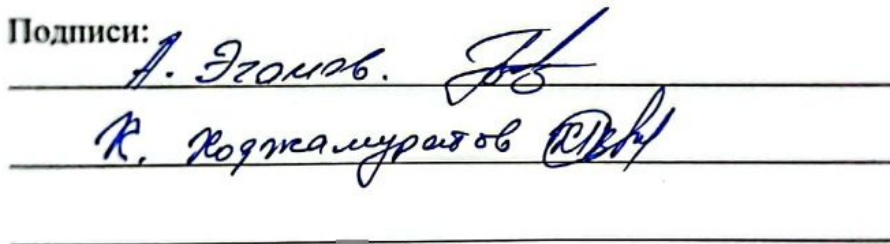 Подписи:
А. Эгамов.
К. Ходжамуратов